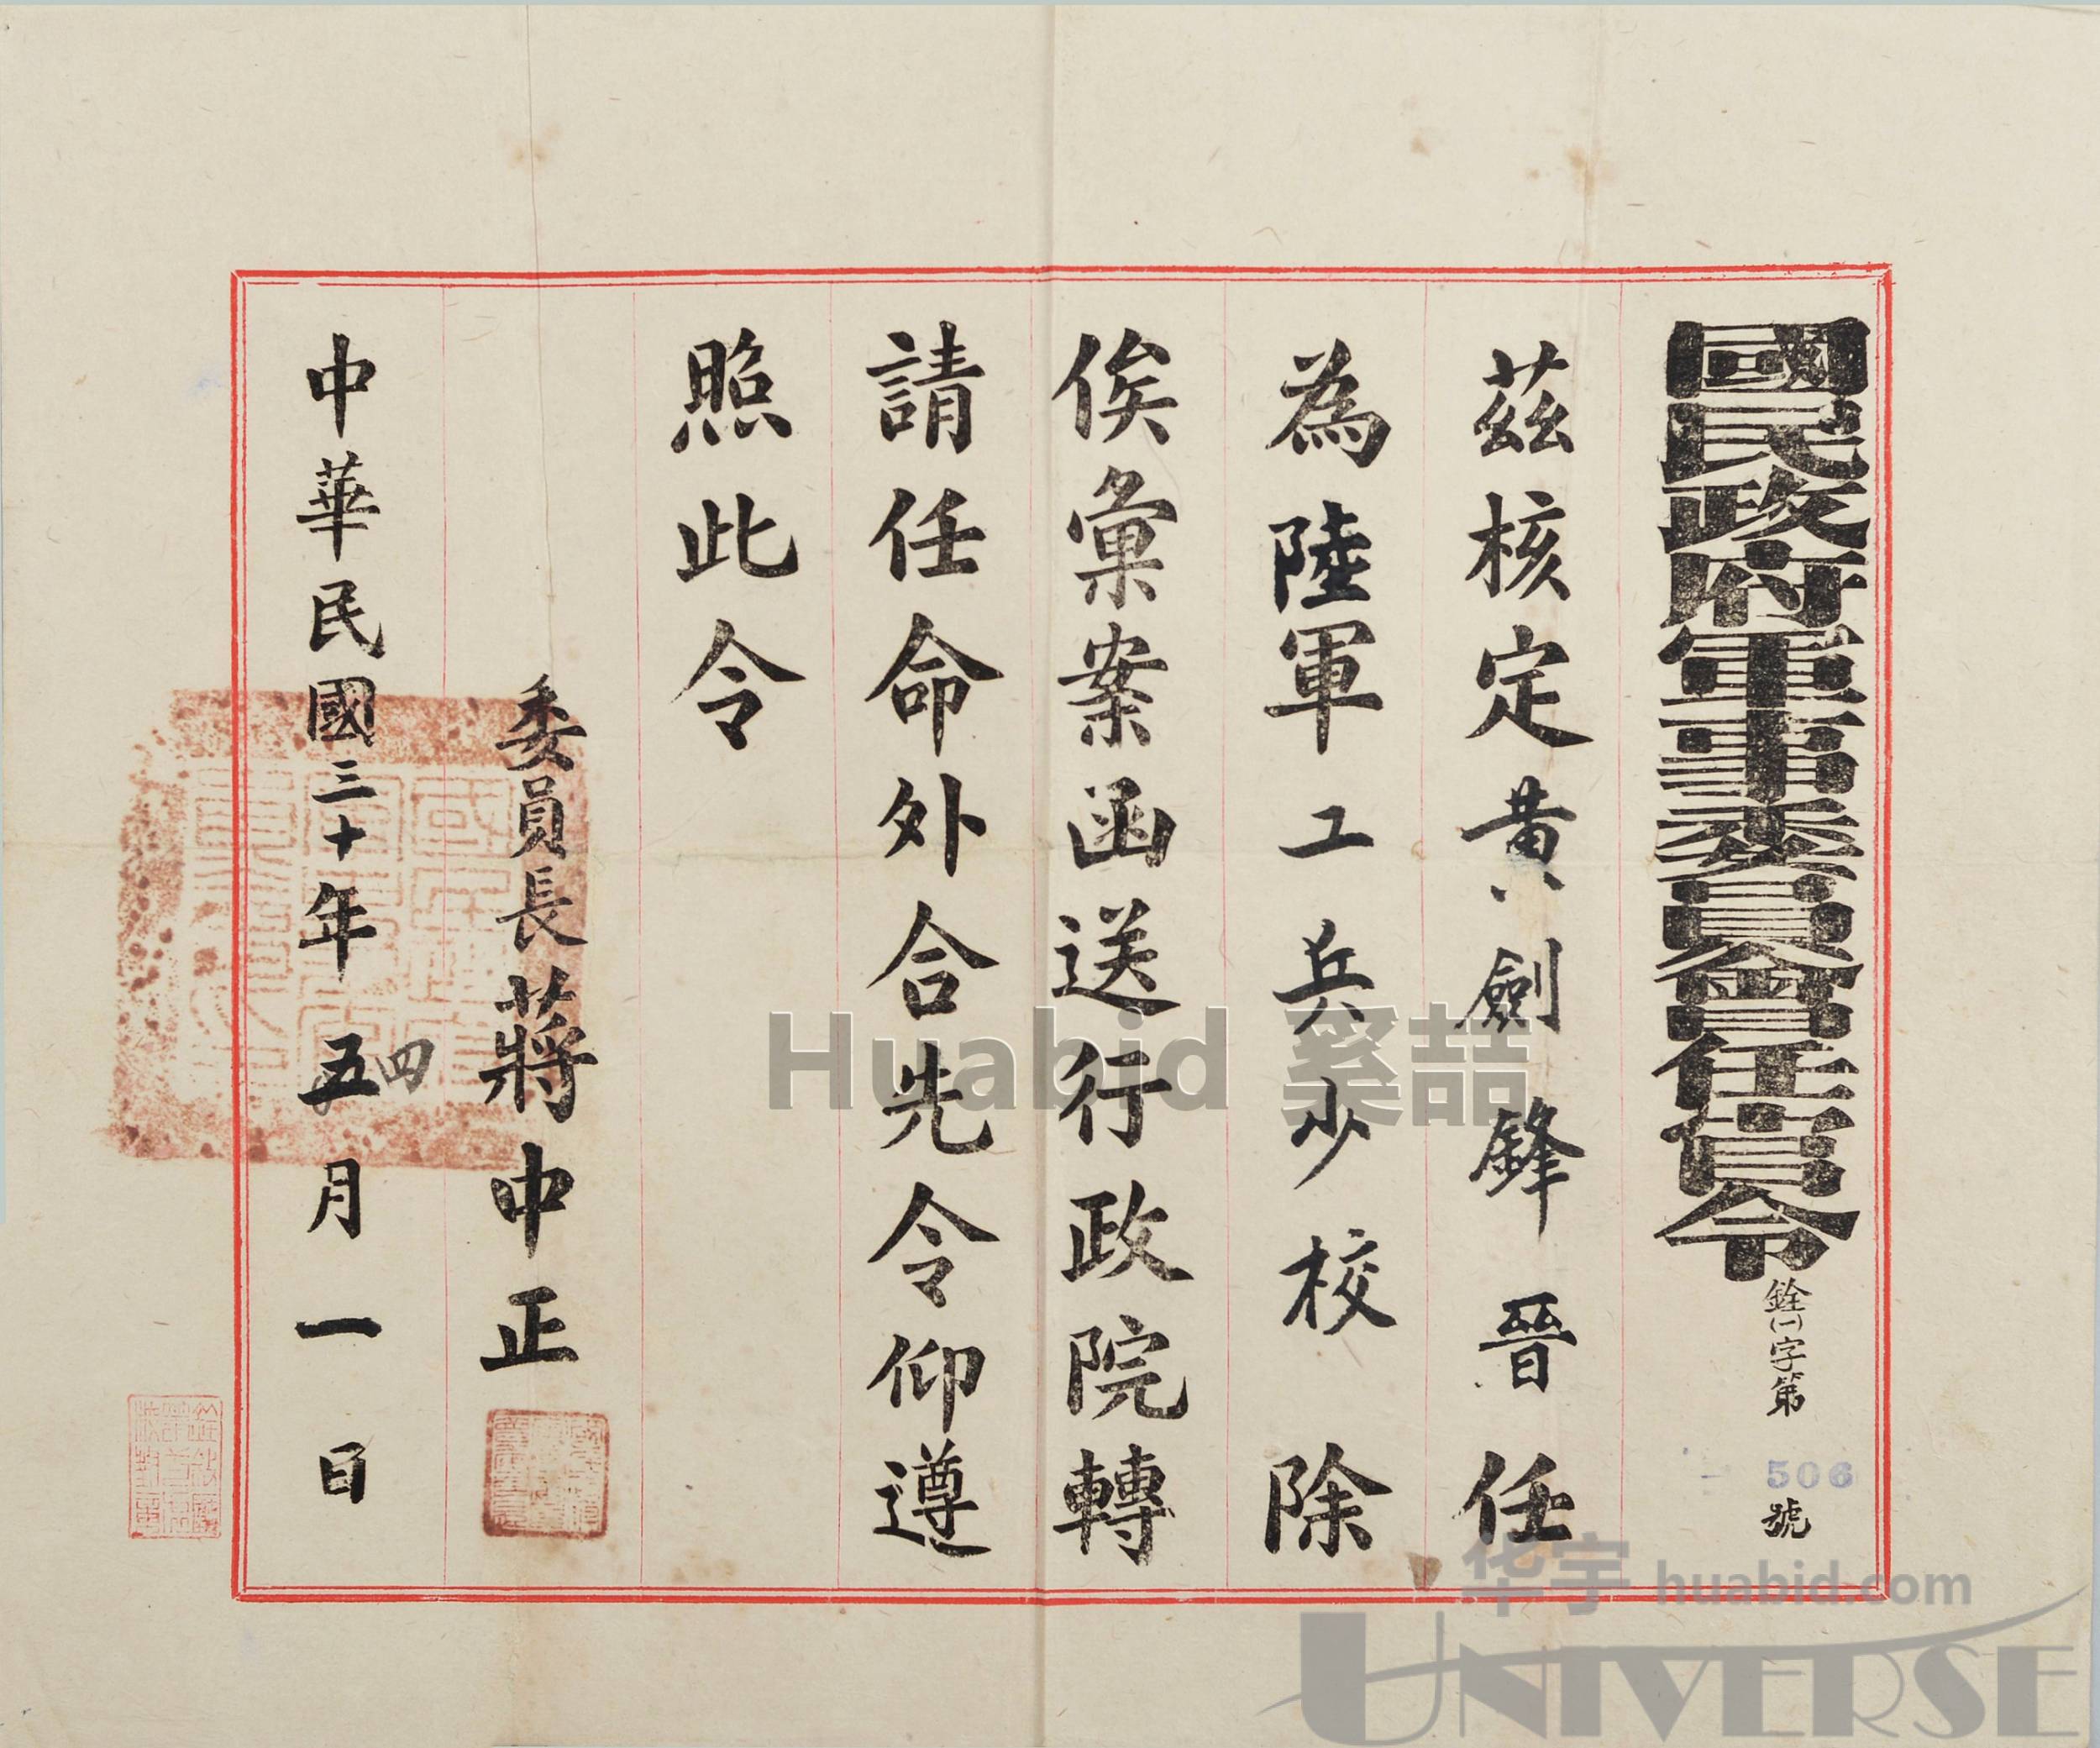 國民政府軍事委員會任官令
銓㈠字第506號
茲核定黃劍鋒晉任
為陸軍工兵少校除
俟彙案函送行政院轉
請任命外合先令仰遵
照此令
委員長蔣中正
中華民國三十年五月一日
四
Huabid
华宇 huabid.com
UNIVERSE